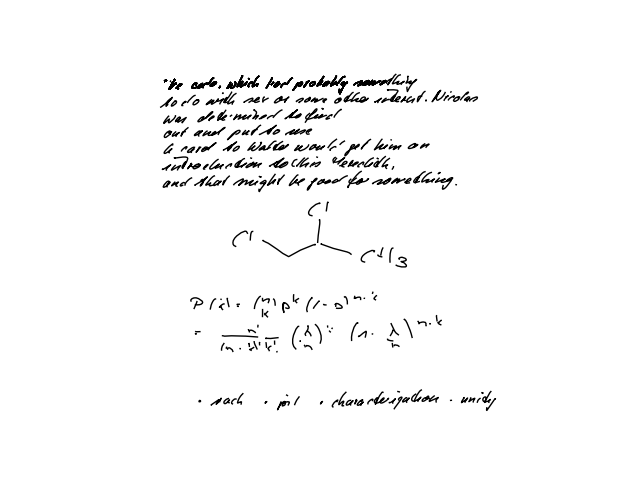 code, which had probably something
to do with sex or some other interest. Nicolas
was determined to find
out and put to use
card to Walter would get him an
introduction to this Meredith,
and that might be good for something.
Cl
Cl CH3
P(k) = (n k) p^k (1-p)^n-k
= n! / (n-k)! k! (λ/n)^k (1-λ/n)^n-k
· sack · pit · characterization · unity